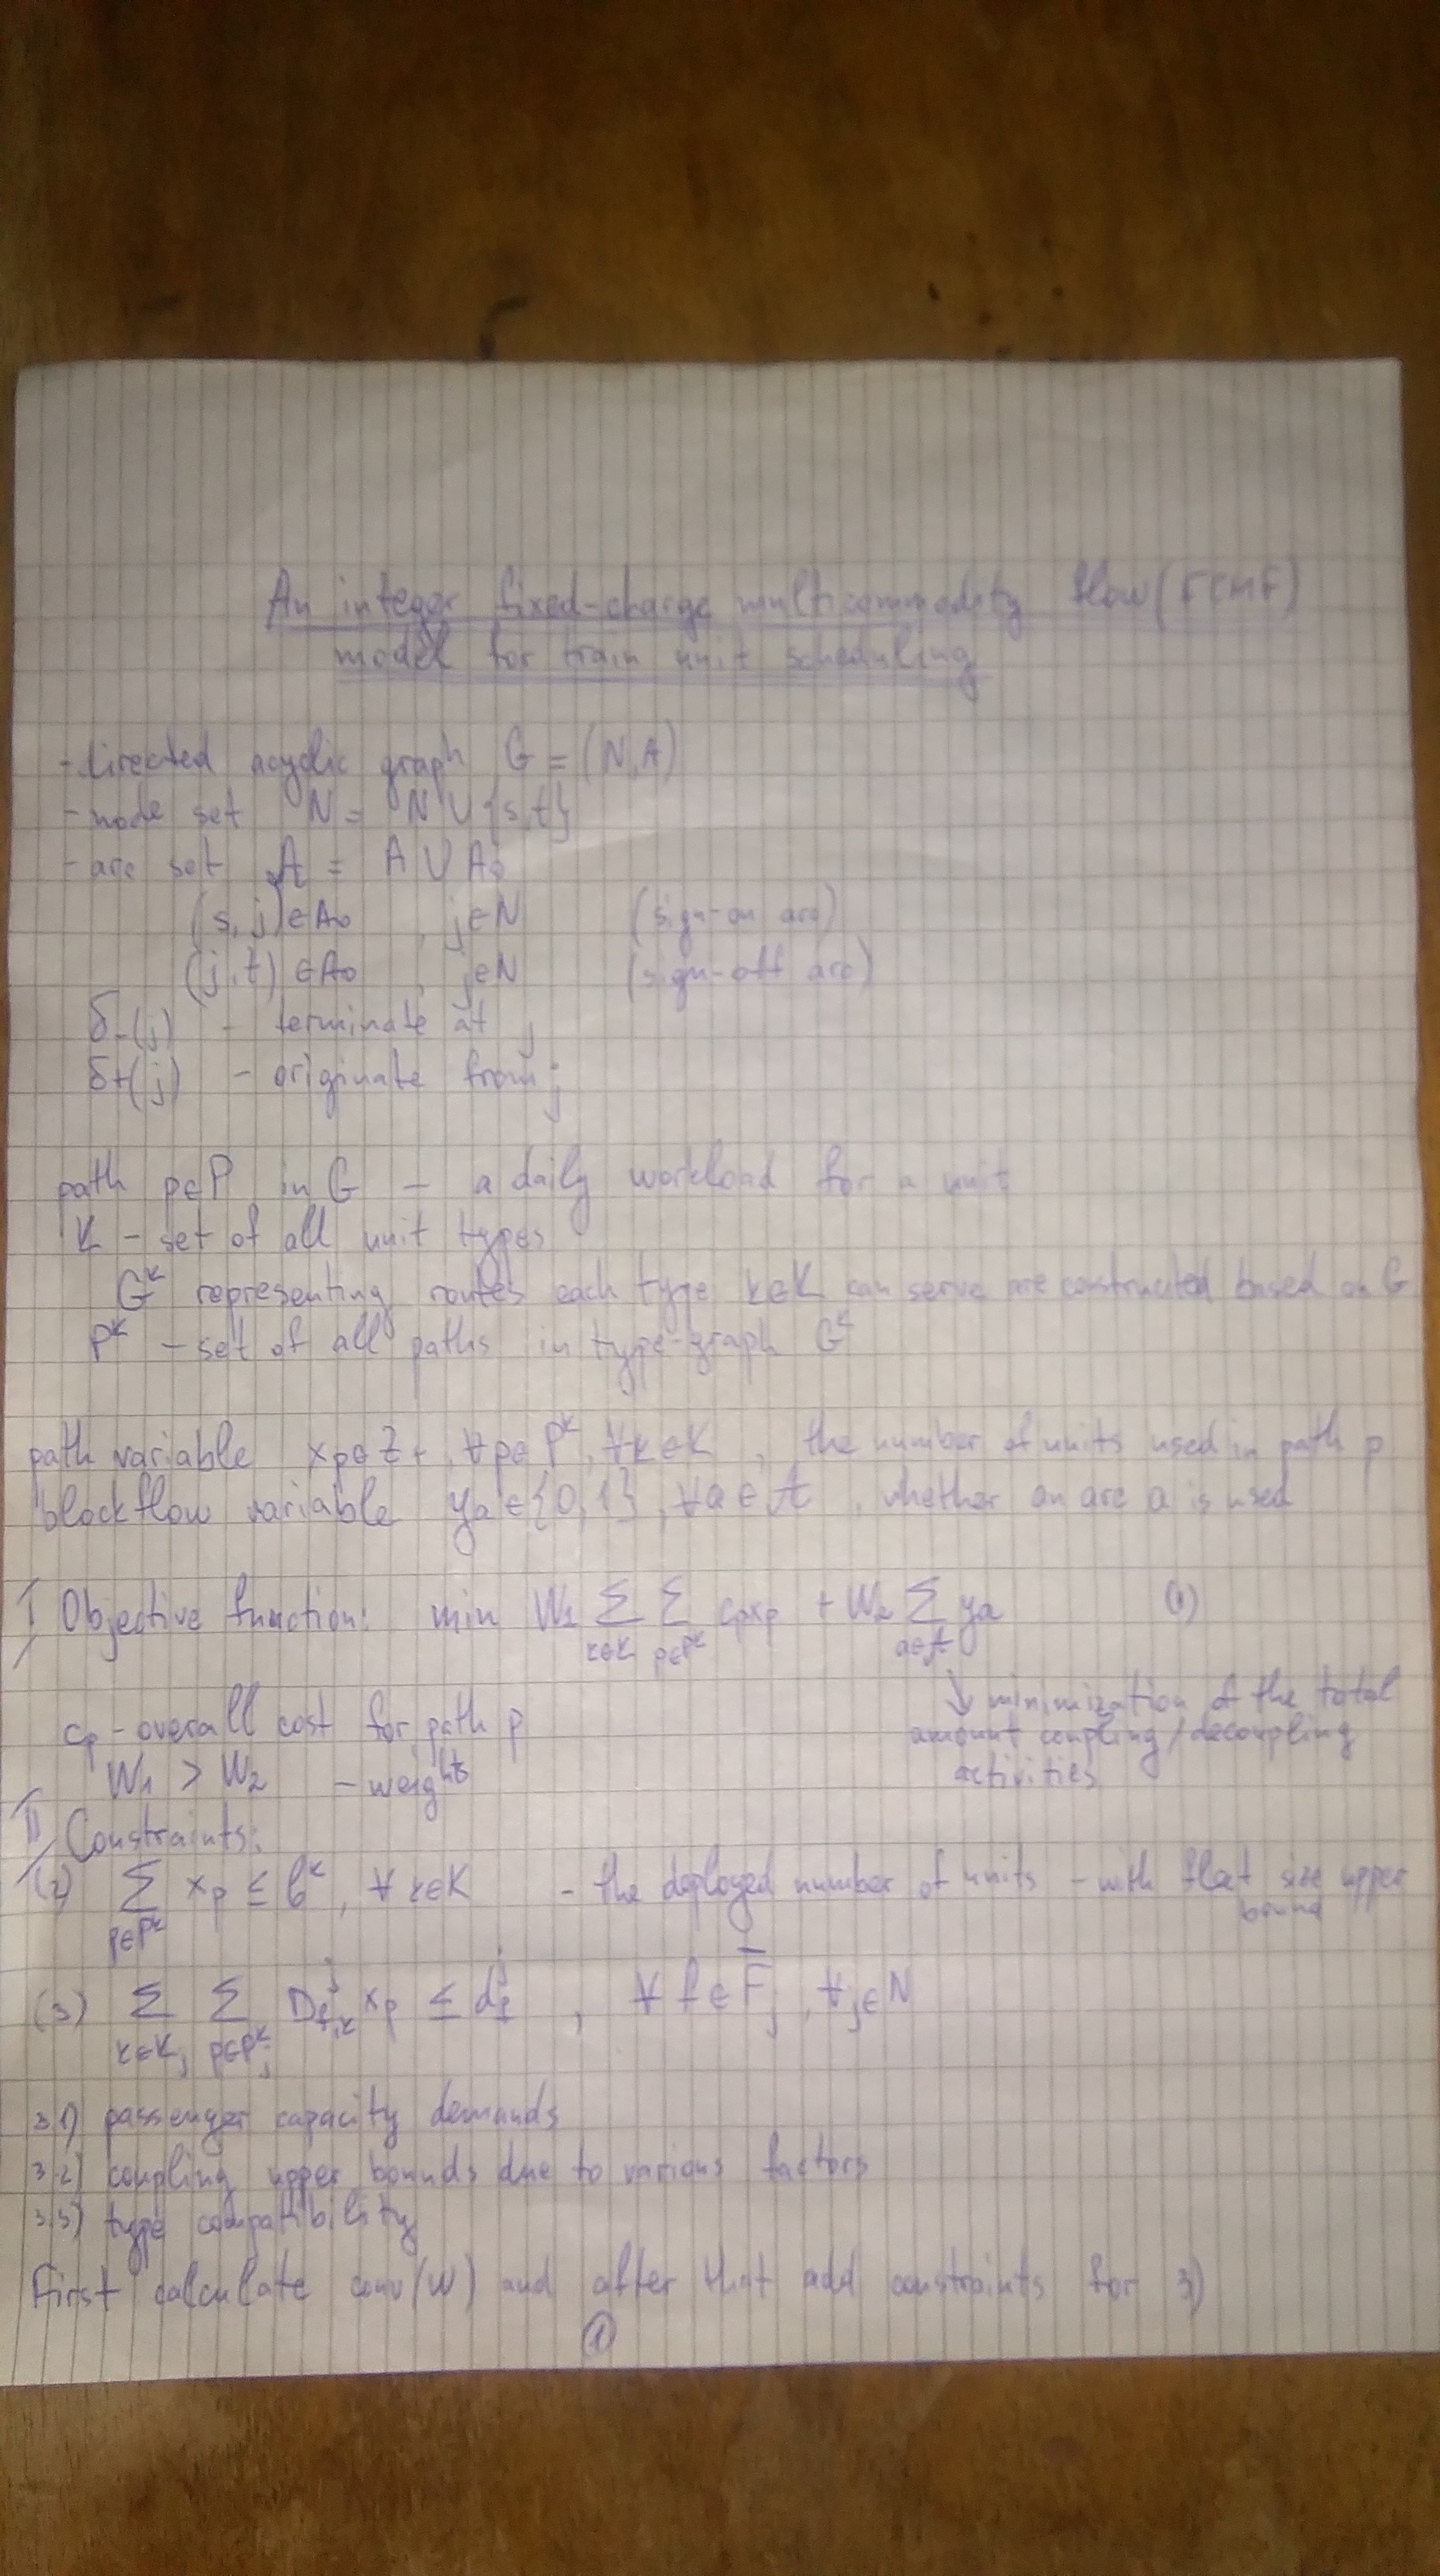 An integer fixed-charge multicommodity flow (FCMF)
model for train unit scheduling
- directed acyclic graph G = (N, A)
- node set N = N ∪ {s,t}
- arc set A = A ∪ A₀
(s, j) ∈ A₀ , j∈N (sign-on arc)
(j, t) ∈ A₀ , j∈N (sign-off arc)
δ-(j) - terminate at j
δ+(j) - originate from j
path p∈P in G - a daily workload for a unit
K - set of all unit types
Gᵏ representing routes each type k∈K can serve are constructed based on G
Pᵏ - set of all paths in type-graph Gᵏ
path variable xp∈Z+, ∀p∈Pᵏ, ∀k∈K , the number of units used in path p
blockflow variable ya∈{0,1}, ∀a∈A , whether an arc a is used
I Objective function: min W₁ ∑k∈K ∑p∈Pᵏ cpxp + W₂ ∑a∈A ya (1)
cp - overall cost for path p
↓ minimization of the total
amount coupling/decoupling
activities
W₁ > W₂ - weights
II Constraints:
(2) ∑p∈Pᵏ xp ≤ bᵏ, ∀k∈K - the deployed number of units - with fleet size upper
bound
(3) ∑k∈Kj ∑p∈Pjᵏ Dʲf,k xp ≤ dʲf , ∀f∈F̅j , ∀j∈N
3.1) passenger capacity demands
3.2) coupling upper bounds due to various factors
3.3) type compatibility
First calculate conv(W) and after that add constraints for 3)
①